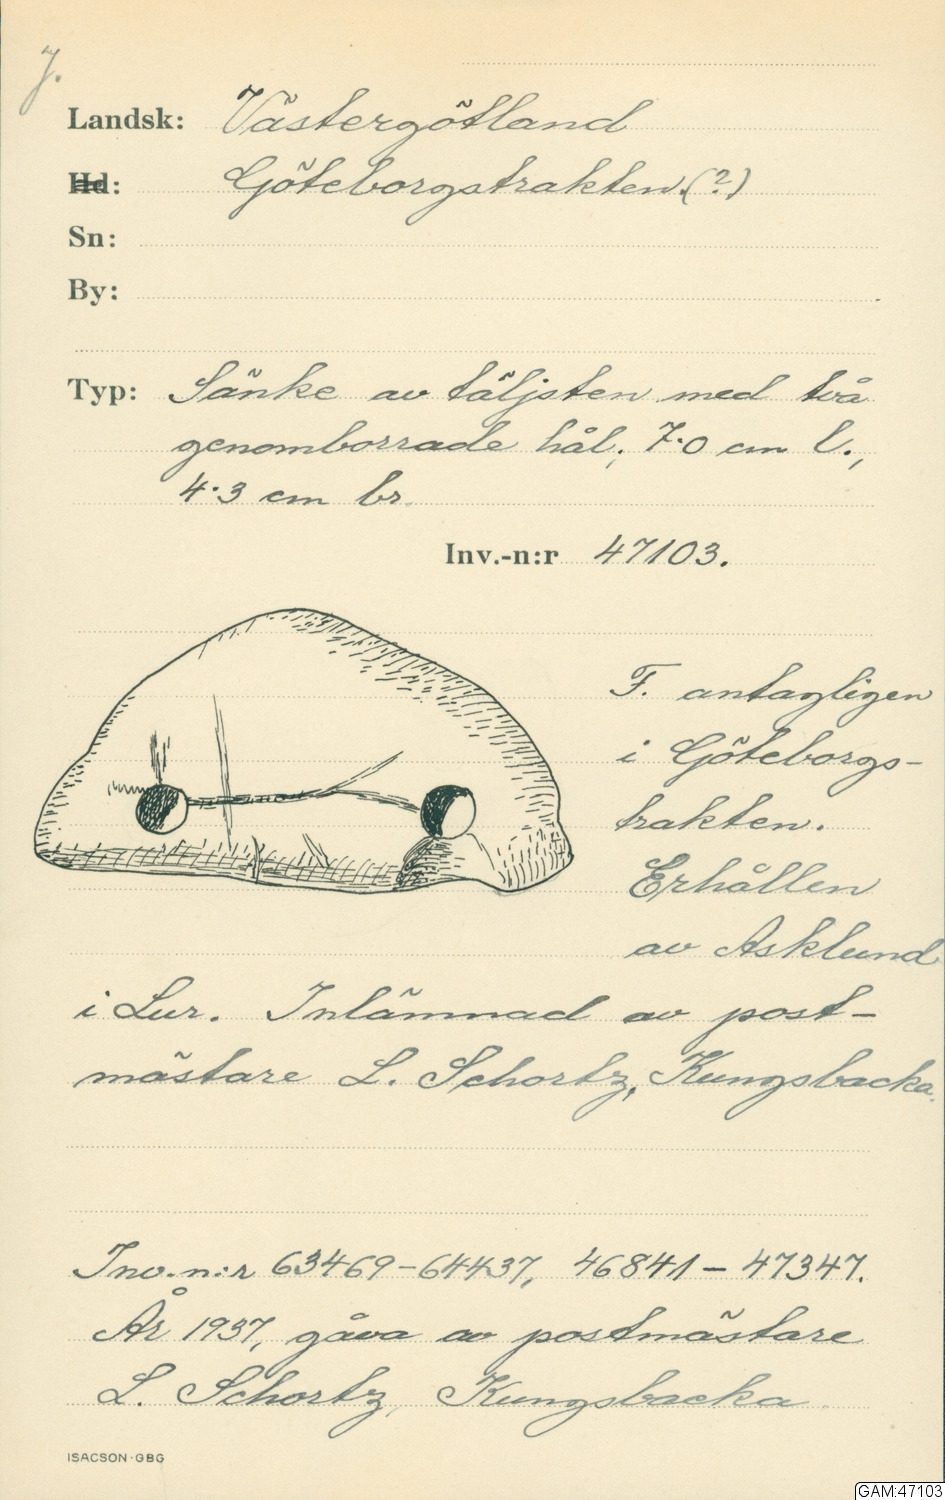 7.
Landsk: Västergötland
Hd: Göteborgstrakten.(?)
Sn:
By:
Typ: Sänke av täljsten med två
genomborrade hål; 7.0 cm l.,
4.3 cm br.
Inv.-n:r 47103.
F. antagligen
i Göteborgs-
trakten.
Erhållen
av Asklund
i Lur. Inlämnad av post-
mästare L. Schortz, Kungsbacka.
Inv.n:r 63469-64437, 46841-47347.
År 1937, gåva av postmästare
L. Schortz, Kungsbacka.
ISACSON·GBG
GAM:47103